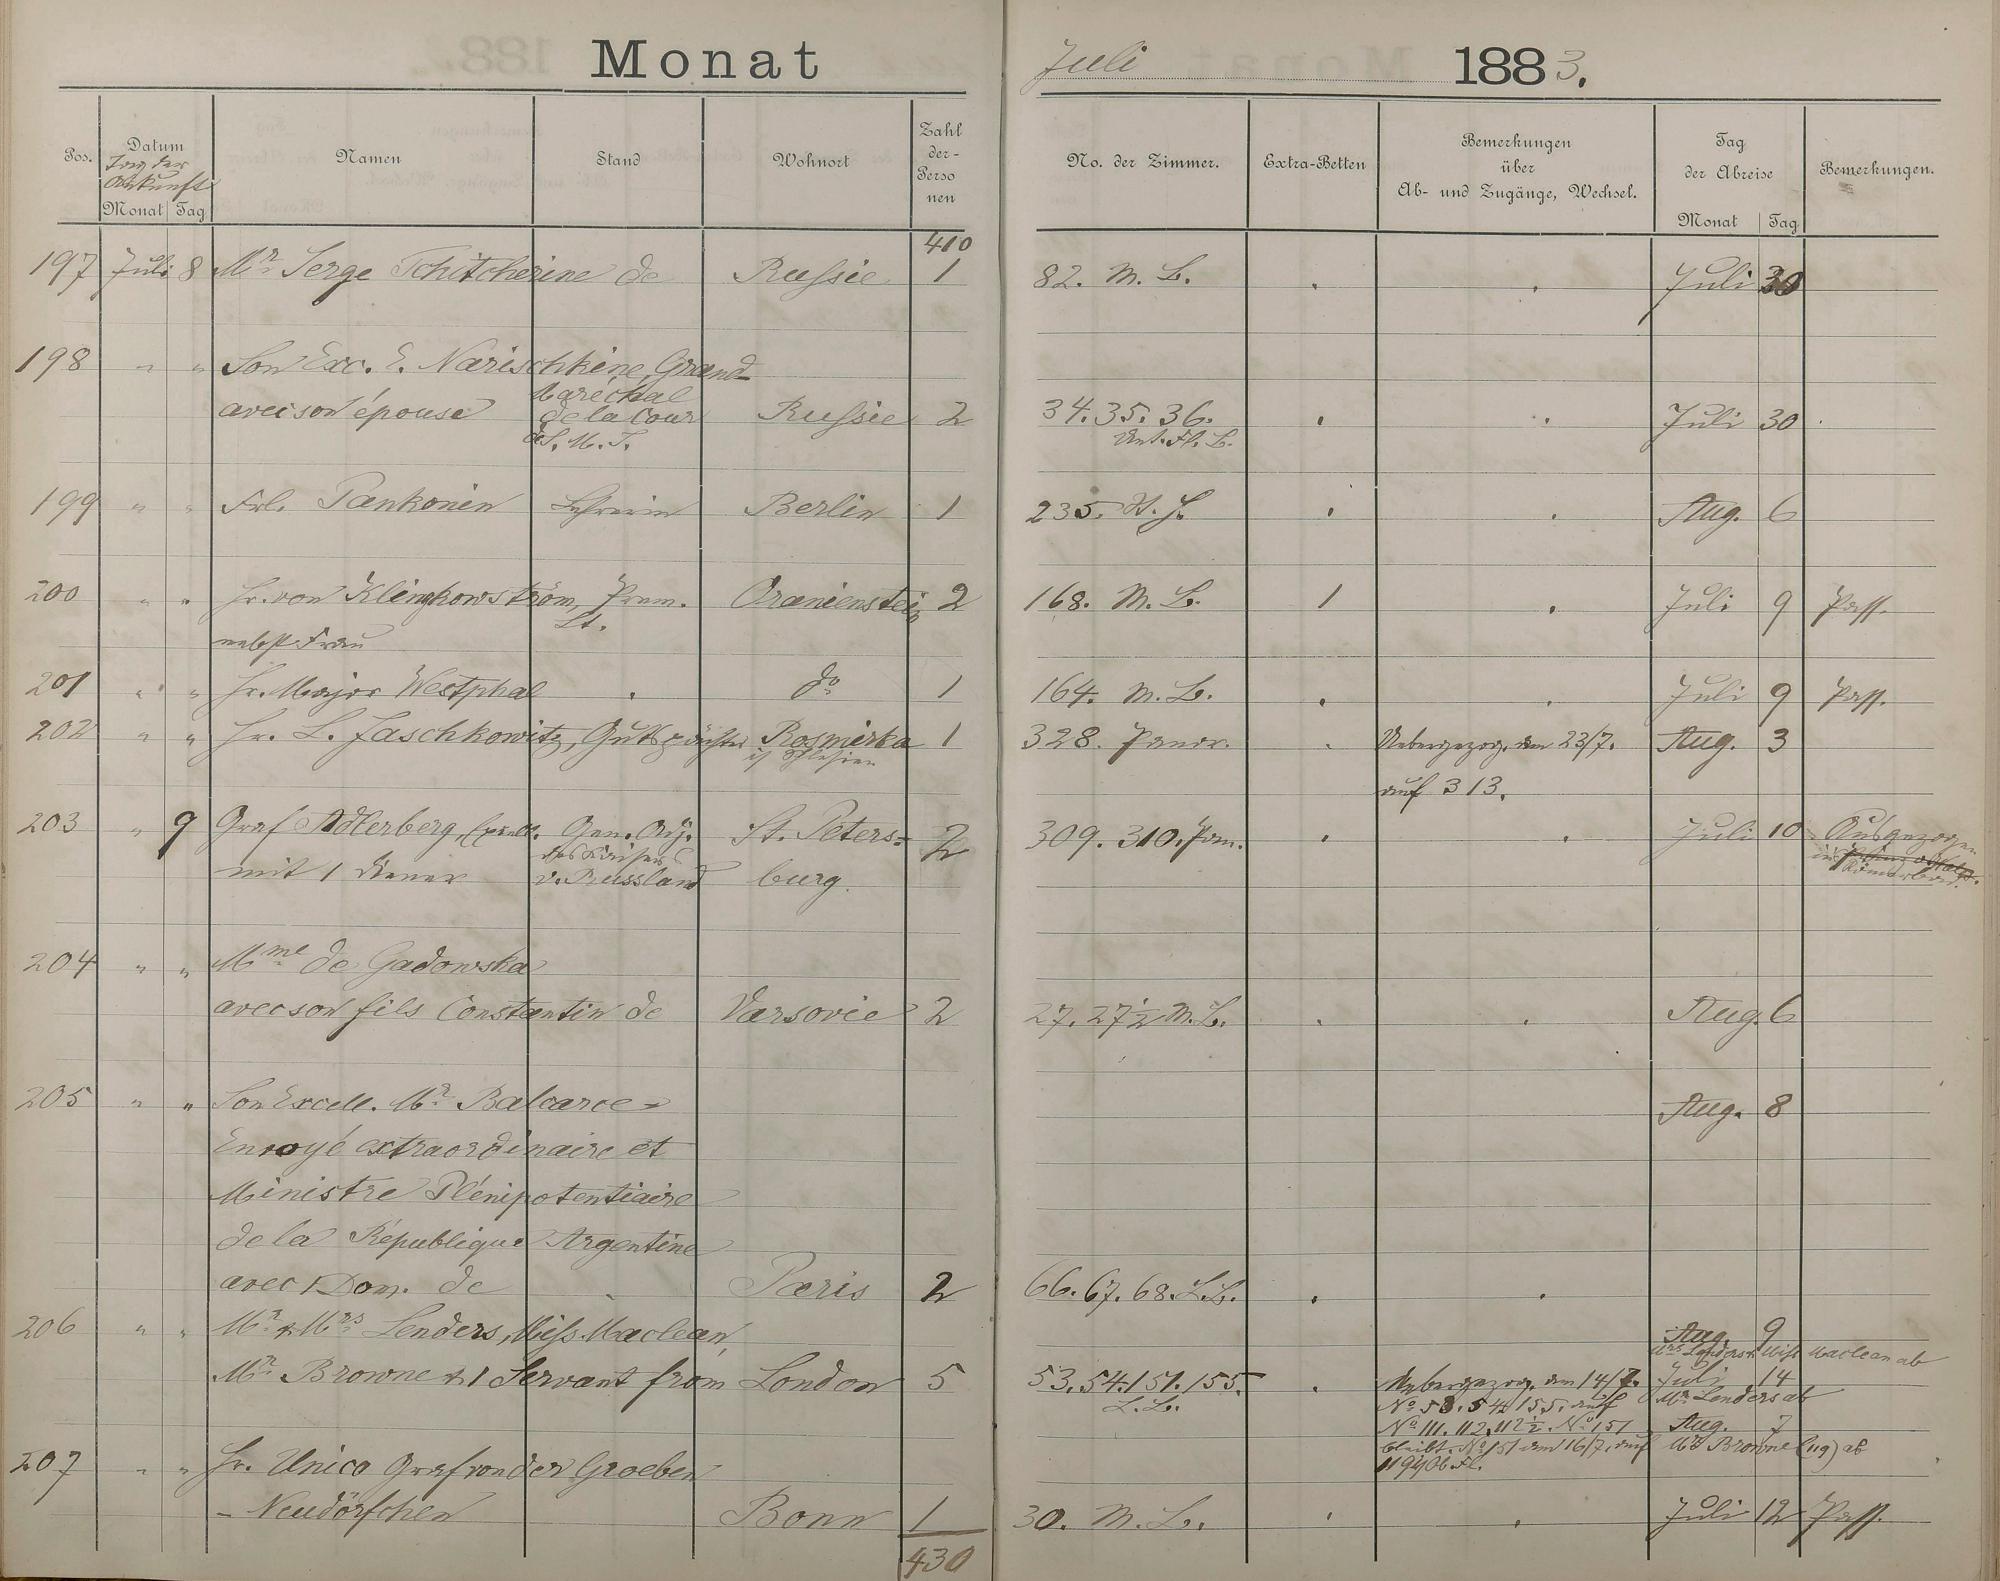 Monat Juli 1883.
Pos. Datum Namen Stand Wohnort Zahl der Personen No. der Zimmer. Extra-Betten Bemerkungen über Ab- und Zugänge, Wechsel. Tag der Abreise Bemerkungen.
Tag der Ankunft
Monat Tag Monat Tag
410
197 Juli 8 Mr. Serge Tchitcherine de Russie 1 82. M. B. Juli 30
198 " " Son Exc. E. Narischkine, Grand-
Maréchal
avec son épouse de la Cour Russie 2 34. 35. 36. Juli 30
de S. M. I. Unt. Fl. B.
199 " " Frl. Pankonin Lehrerin Berlin 1 235. Aug. 6
200 " " Hr. von Klinkowström, Prem. Oranienstein 2 168. M. B. 1 Juli 9 Pass.
Lt.
nebst Frau
201 " " Hr. Major Westphal do 1 164. M. B. Juli 9 Pass.
202 " " Hr. L. Jaschkowitz, Gutspächter Rosmirka 1 328. Panor. Uebergezog. am 23/7. Aug. 3
i/ Schlesien
auf 313.
203 " 9 Graf Adlerberg, Excell. Gen. Adj. St. Peters= 2 309. 310. Pan. Juli 10 Ausgezogen
des Kaisers
mit 1 Diener v. Russland burg. Römerbad.
204 " " Mme de Gadowska
avec son fils Constantin de Varsovie 2 27. 27 1/2 M. B. Aug. 6
205 " " Son Excell. Mr. Balcarce Aug. 8
Envoyé extraordinaire et
Ministre Plénipotentiaire
de la République Argentine
avec 1 Dom. de Paris 2 66. 67. 68. L. B.
206 " " Mr. & Mrs. Lenders, Miss Maclean, Aug. 9
Mrs Lenders & Miss Maclean ab
Mr. Browne & 1 Servant from London 5 53. 54. 151. 155. Uebergezog. am 14/7. Juli 14
L. B. No 53. 54. 155. auf Mr. Lenders ab
No 111. 112. 112 1/2. No 151 Aug. 7
bleibt. No 151 am 16/7. auf Mr Browne (119) ab
119 Ob. Fl.
207 " " Hr. Unico Graf von der Groeben
- Neudörfchen Bonn 1 30. M. B. Juli 12 Pass.
430